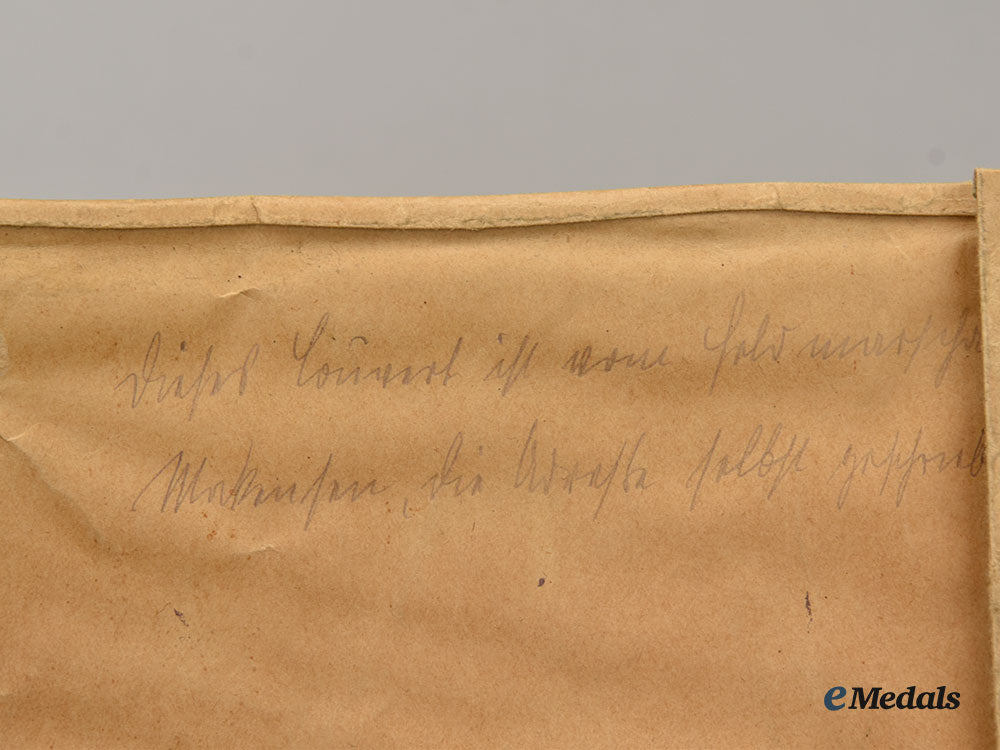 Dieses Couvert ist vom Feldmarscha
Makensen, die Adresse selbst geschrieb
eMedals